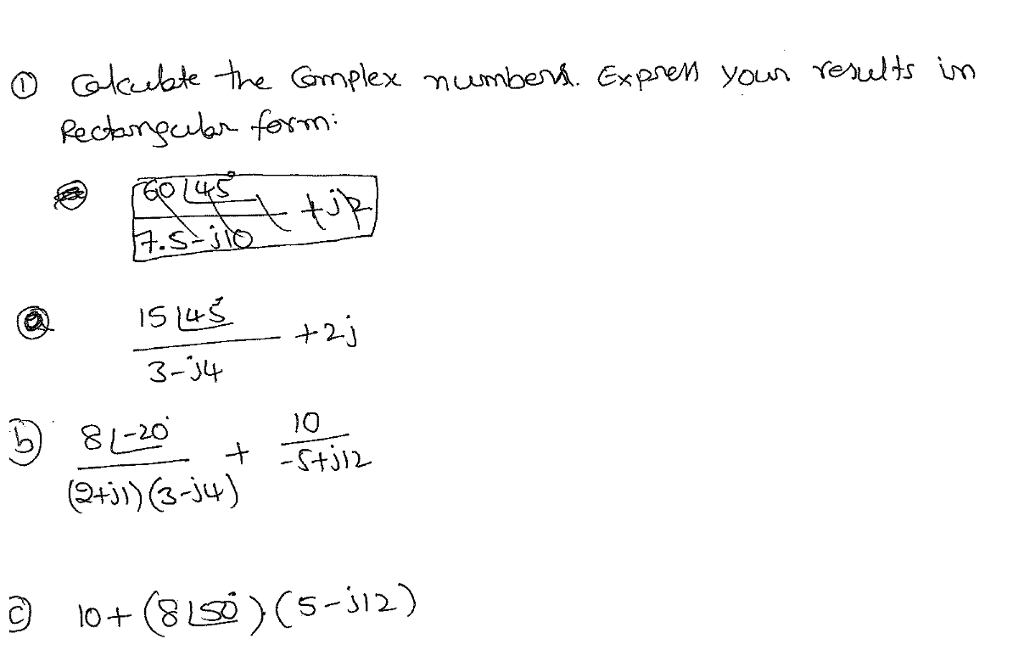 ① Calculate the Complex numbers. Express your results in
Rectangular form:
60∠45°
7.5-j10
+j2
ⓐ
15∠45°
3-j4
+2j
ⓑ 8∠-20°
(2+j1)(3-j4)
+
10
-5+j12
ⓒ 10+(8∠50°)(5-j12)